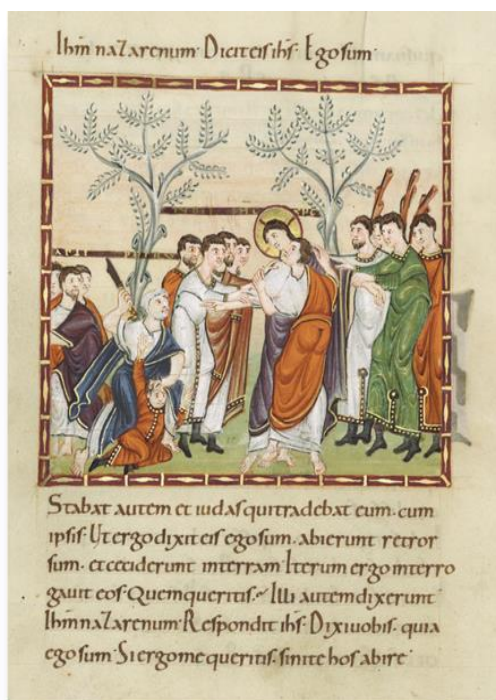 Ihm nazarenum· Dicit eis ihs· Ego sum·
Stabat autem et iudas qui tradebat eum· cum
ipsis· Ut ergo dixit eis ego sum· abierunt retror
sum· et ceciderunt in terram· Iterum ergo interro
gauit eos· Quem queritis· Illi autem dixerunt·
Ihm nazarenum· Respondit ihs· Dixi uobis· quia
ego sum· Si ergo me queritis· sinite hos abire·